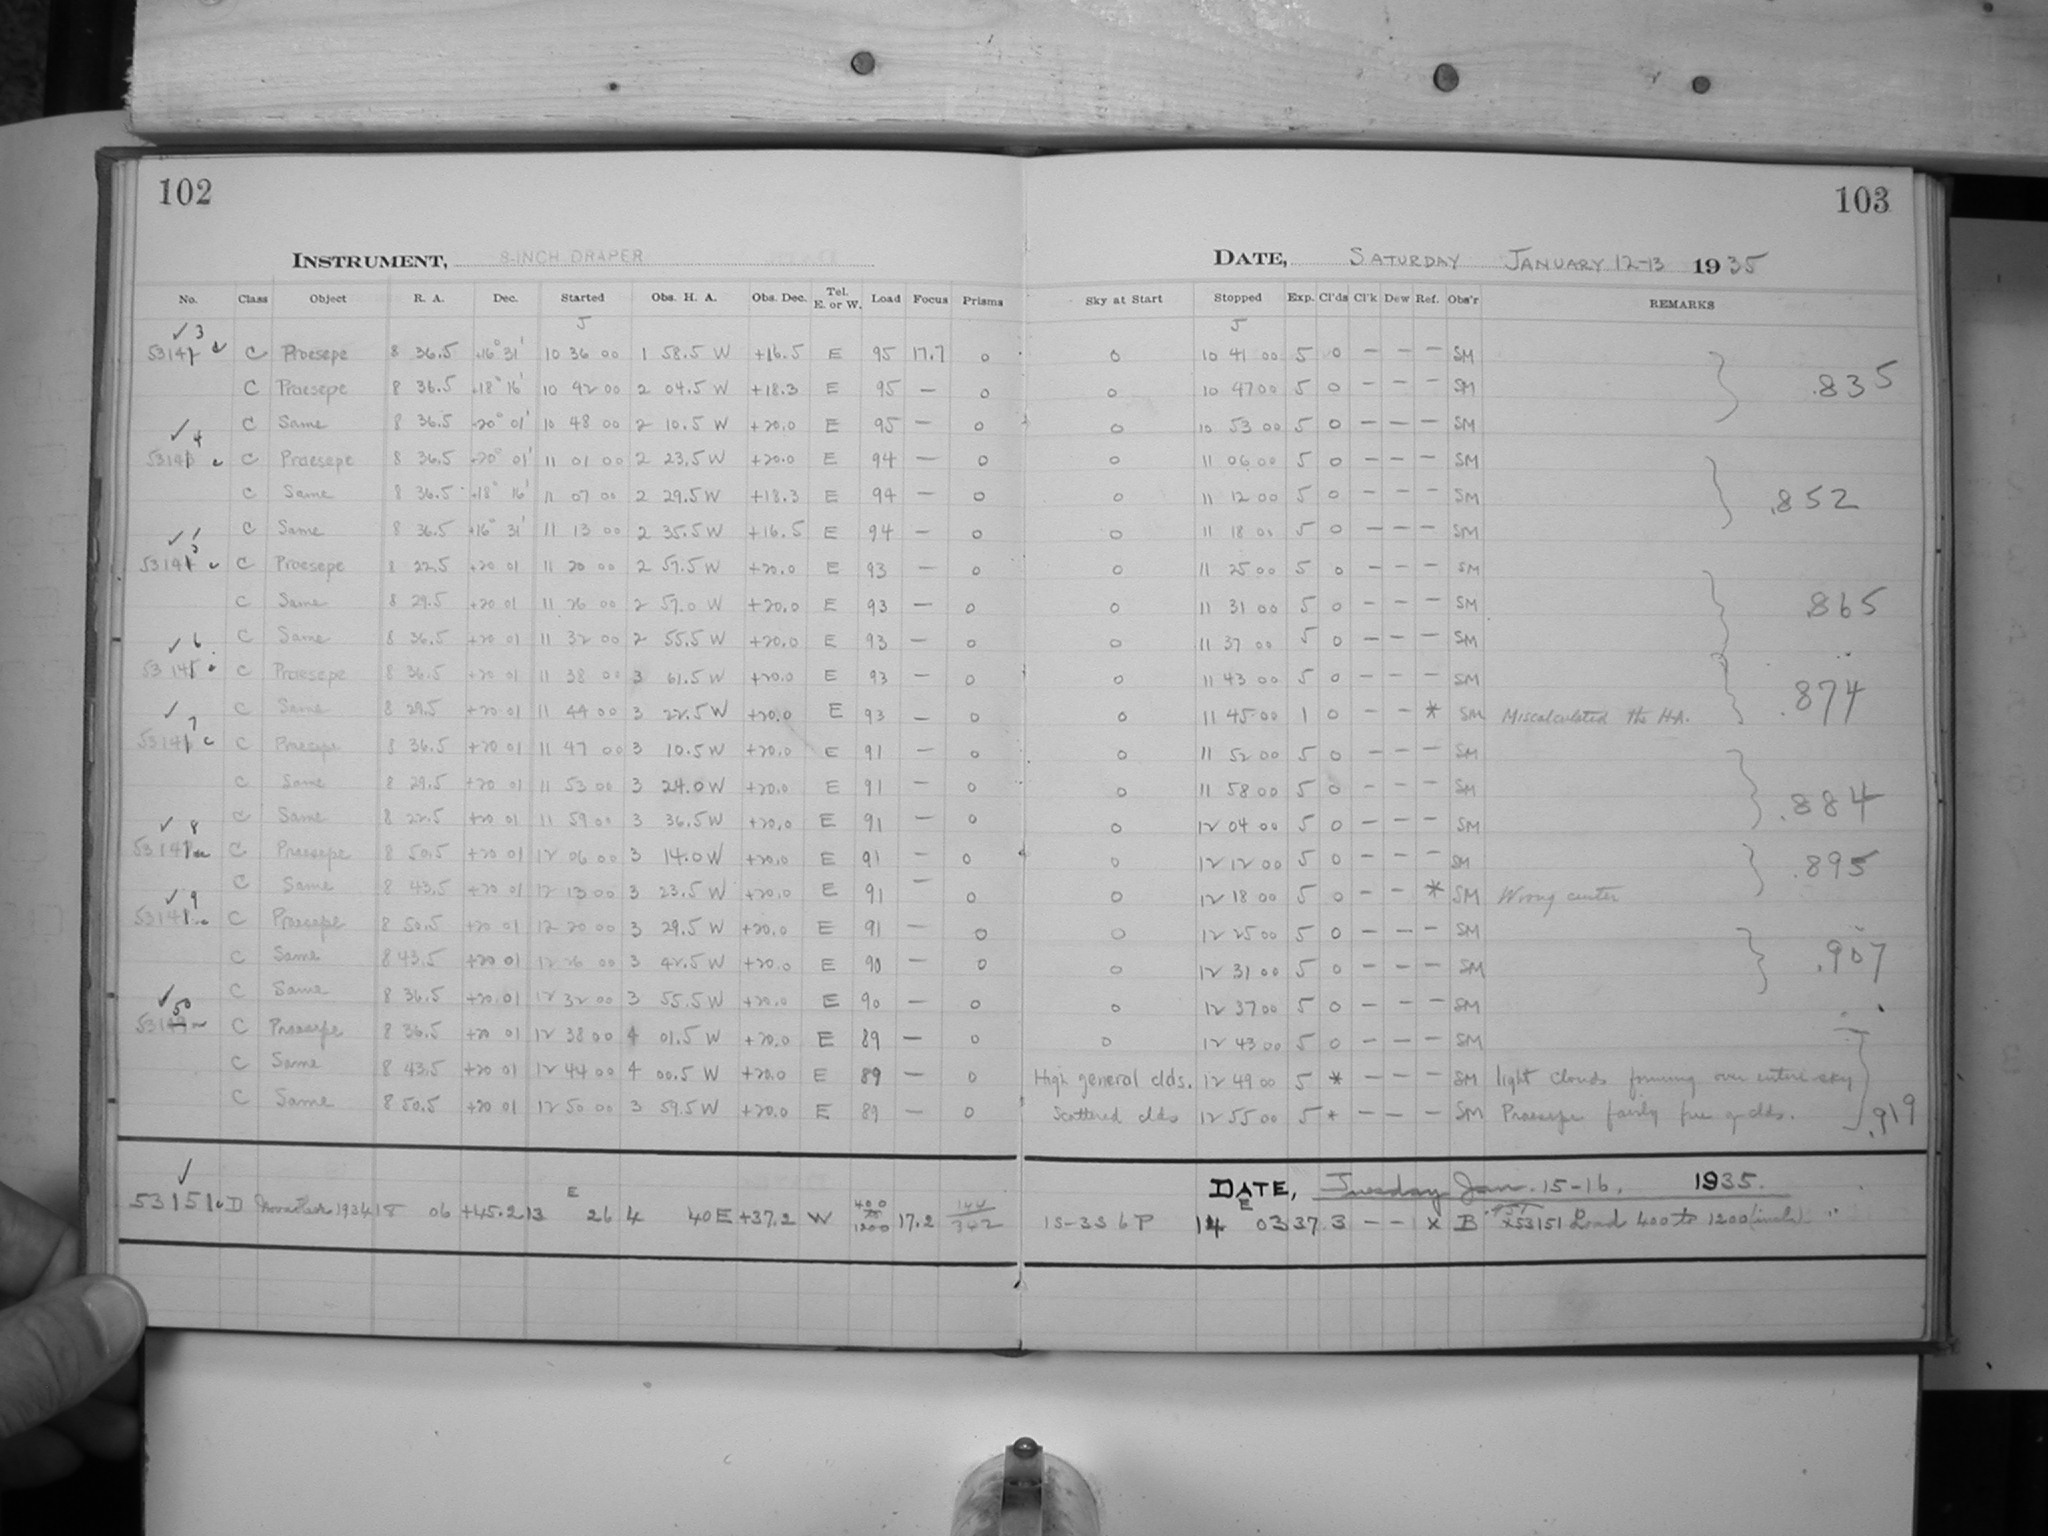 102
103
INSTRUMENT, 8-INCH DRAPER
DATE, SATURDAY JANUARY 12-13 1935
No. Class Object R. A. Dec. Started Obs. H. A. Obs. Dec. Tel. E. or W. Load Focus Prisms Sky at Start Stopped Exp. Cl'ds Cl'k Dew Ref. Obs'r REMARKS
J J
✓ 3
C Praesepe 8 36.5 +16° 31' 10 36 00 1 58.5 W +16.5 E 95 17.7 0 0 10 41 00 5 0 — — — SM
C Praesepe 8 36.5 +18° 16' 10 42 00 2 04.5 W +18.3 E 95 — 0 0 10 47 00 5 0 — — — SM .835
C Same 8 36.5 +20° 01' 10 48 00 2 10.5 W +20.0 E 95 — 0 0 10 53 00 5 0 — — — SM
✓ 4
C Praesepe 8 36.5 +20° 01' 11 01 00 2 23.5 W +20.0 E 94 — 0 0 11 06 00 5 0 — — — SM
C Same 8 36.5 +18° 16' 11 07 00 2 29.5 W +18.3 E 94 — 0 0 11 12 00 5 0 — — — SM .852
C Same 8 36.5 +16° 31' 11 13 00 2 35.5 W +16.5 E 94 — 0 0 11 18 00 5 0 — — — SM
✓ 5
C Praesepe 8 22.5 +20 01 11 20 00 2 57.5 W +20.0 E 93 — 0 0 11 25 00 5 0 — — — SM
C Same 8 29.5 +20 01 11 26 00 2 57.0 W +20.0 E 93 — 0 0 11 31 00 5 0 — — — SM .865
C Same 8 36.5 +20 01 11 32 00 2 55.5 W +20.0 E 93 — 0 0 11 37 00 5 0 — — — SM
✓ 6
C Praesepe 8 36.5 +20 01 11 38 00 3 01.5 W +20.0 E 93 — 0 0 11 43 00 5 0 — — — SM .874
C Same 8 29.5 +20 01 11 44 00 3 22.5 W +20.0 E 93 — 0 0 11 45 00 1 0 — — * SM Miscalculated the H.A.
✓ 7
C Praesepe 8 36.5 +20 01 11 47 00 3 10.5 W +20.0 E 91 — 0 0 11 52 00 5 0 — — — SM
C Same 8 29.5 +20 01 11 53 00 3 24.0 W +20.0 E 91 — 0 0 11 58 00 5 0 — — — SM .884
C Same 8 22.5 +20 01 11 59 00 3 36.5 W +20.0 E 91 — 0 0 12 04 00 5 0 — — — SM
✓ 8
C Praesepe 8 50.5 +20 01 12 06 00 3 14.0 W +20.0 E 91 — 0 0 12 12 00 5 0 — — — SM .895
C Same 8 43.5 +20 01 12 13 00 3 23.5 W +20.0 E 91 — 0 0 12 18 00 5 0 — — * SM Wrong center
✓ 9
C Praesepe 8 50.5 +20 01 12 20 00 3 29.5 W +20.0 E 91 — 0 0 12 25 00 5 0 — — — SM
C Same 8 43.5 +20 01 12 26 00 3 42.5 W +20.0 E 90 — 0 0 12 31 00 5 0 — — — SM .907
C Same 8 36.5 +20 01 12 32 00 3 55.5 W +20.0 E 90 — 0 0 12 37 00 5 0 — — — SM
✓ 50
C Praesepe 8 36.5 +20 01 12 38 00 4 01.5 W +20.0 E 89 — 0 0 12 43 00 5 0 — — — SM
C Same 8 43.5 +20 01 12 44 00 4 00.5 W +20.0 E 89 — 0 High general clds. 12 49 00 5 * — — — SM light clouds forming over entire sky
C Same 8 50.5 +20 01 12 50 00 3 59.5 W +20.0 E 89 — 0 Scattered clds 12 55 00 5 * — — — SM Praesepe fairly free of clds. .919
DATE, Tuesday Jan. 15-16, 1935.
✓ 53151 D 1934 18 06 +45.2 13 E 26 4 40 E +37.2 W 400 to 1200 17.2 15-3S 6P 14 E 03 37.3 — — x B x53151 Load 400 to 1200 (incls) "